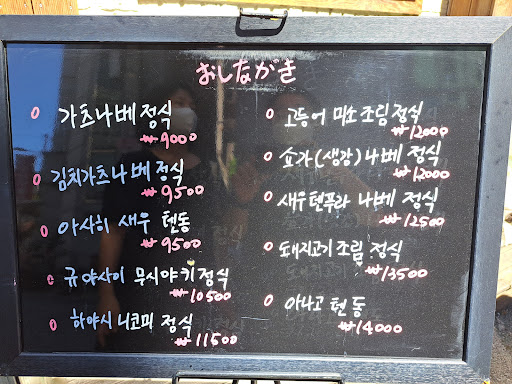 おしながき
가츠나베 정식
₩9000
김치가츠나베 정식
₩9500
아사히 새우 텐동
₩9500
규야사이 무시야키 정식
₩10500
하야시 니코미 정식
₩11500
고등어 미소조림 정식
₩12000
쇼가(생강)나베 정식
₩12000
새우텐푸라 나베 정식
₩12500
돼지고기 조림 정식
₩13500
아나고 텐동
₩14000